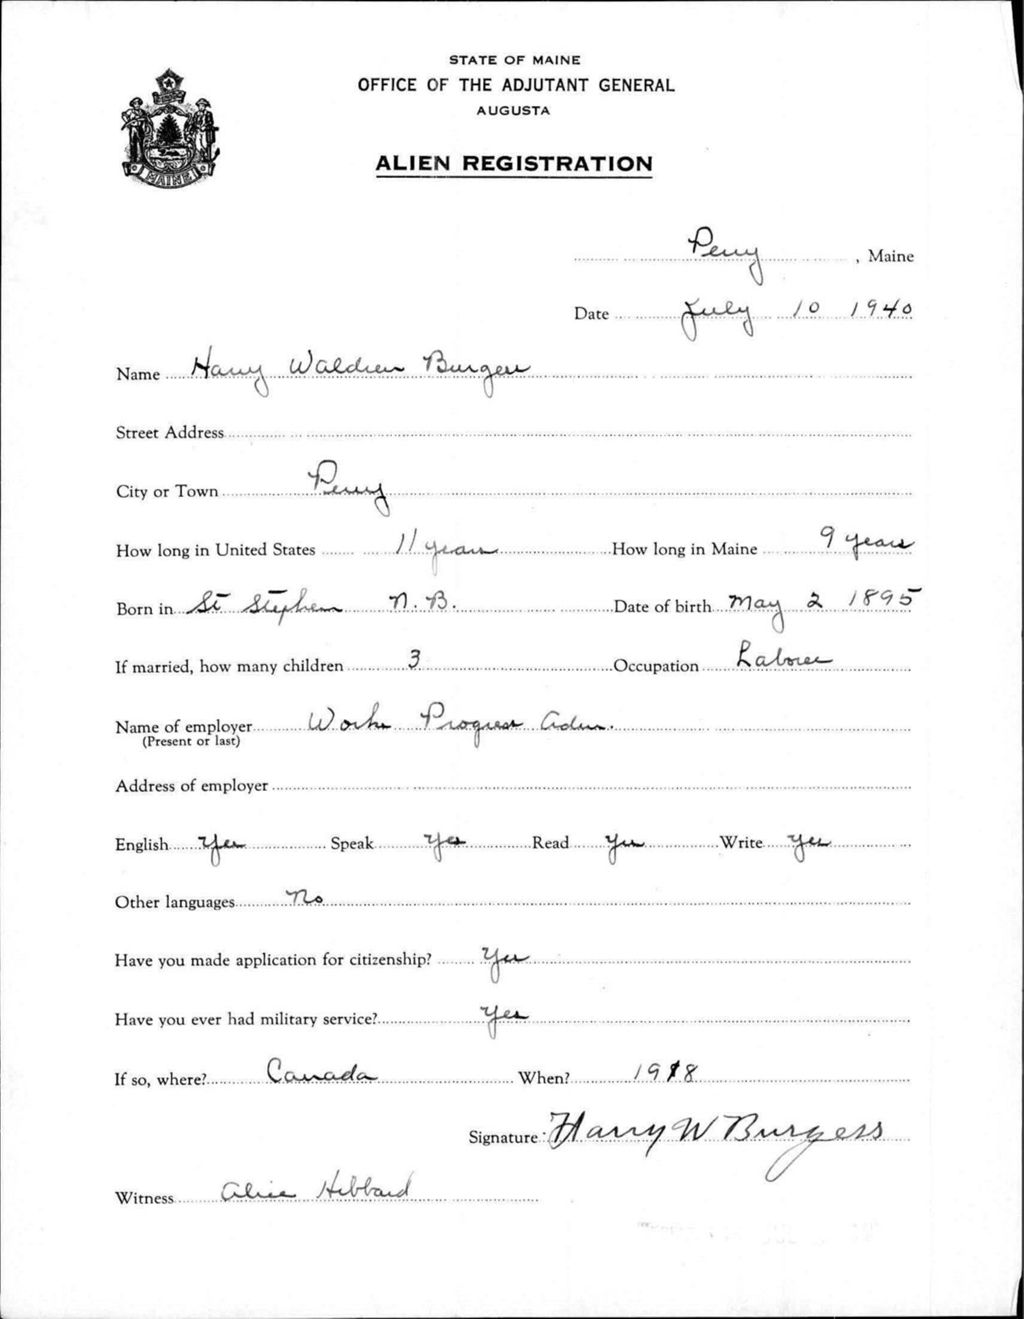 STATE OF MAINE
OFFICE OF THE ADJUTANT GENERAL
AUGUSTA
ALIEN REGISTRATION
MAINE
Perry, Maine
Date July 10 1940
Name Harry Waldren Burgess
Street Address
City or Town Perry
How long in United States 11 years How long in Maine 9 years
Born in St Stephen N.B. Date of birth May 2 1895
If married, how many children 3 Occupation Laborer
Name of employer Works Progress Adm.
(Present or last)
Address of employer
English Yes Speak Yes Read Yes Write Yes
Other languages No
Have you made application for citizenship? Yes
Have you ever had military service? Yes
If so, where? Canada When? 1918
Signature Harry W Burgess
Witness Alice Hibbard